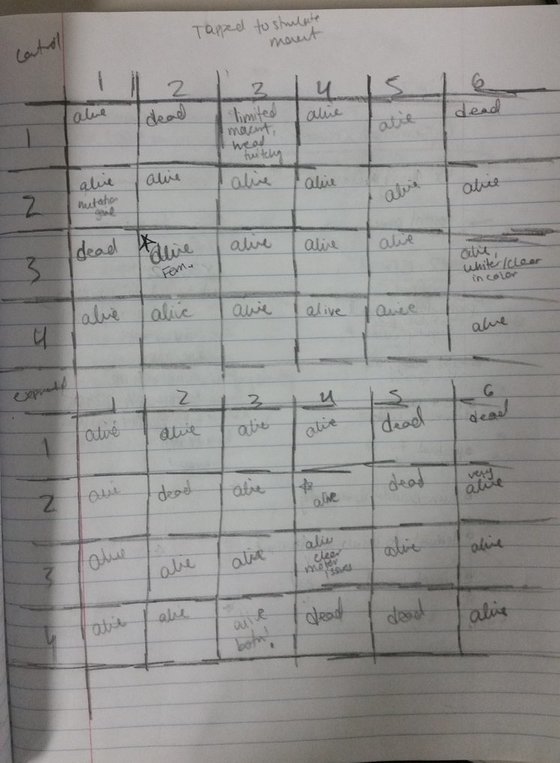 Tapped to stimulate
movent
Control
1 2 3 4 5 6
1 alive dead limited alive alive dead
movent,
head
twitching
2 alive alive alive alive alive alive
mutation
gone
3 dead alive alive alive alive alive,
Fem. whiter/clear
in color
4 alive alive alive alive alive alive
1 2 3 4 5 6
1 alive alive alive alive dead dead
2 alive dead alive alive dead very
alive
3 alive alive alive alive alive alive
clear
motor
issues
4 alive alive alive dead dead alive
both!